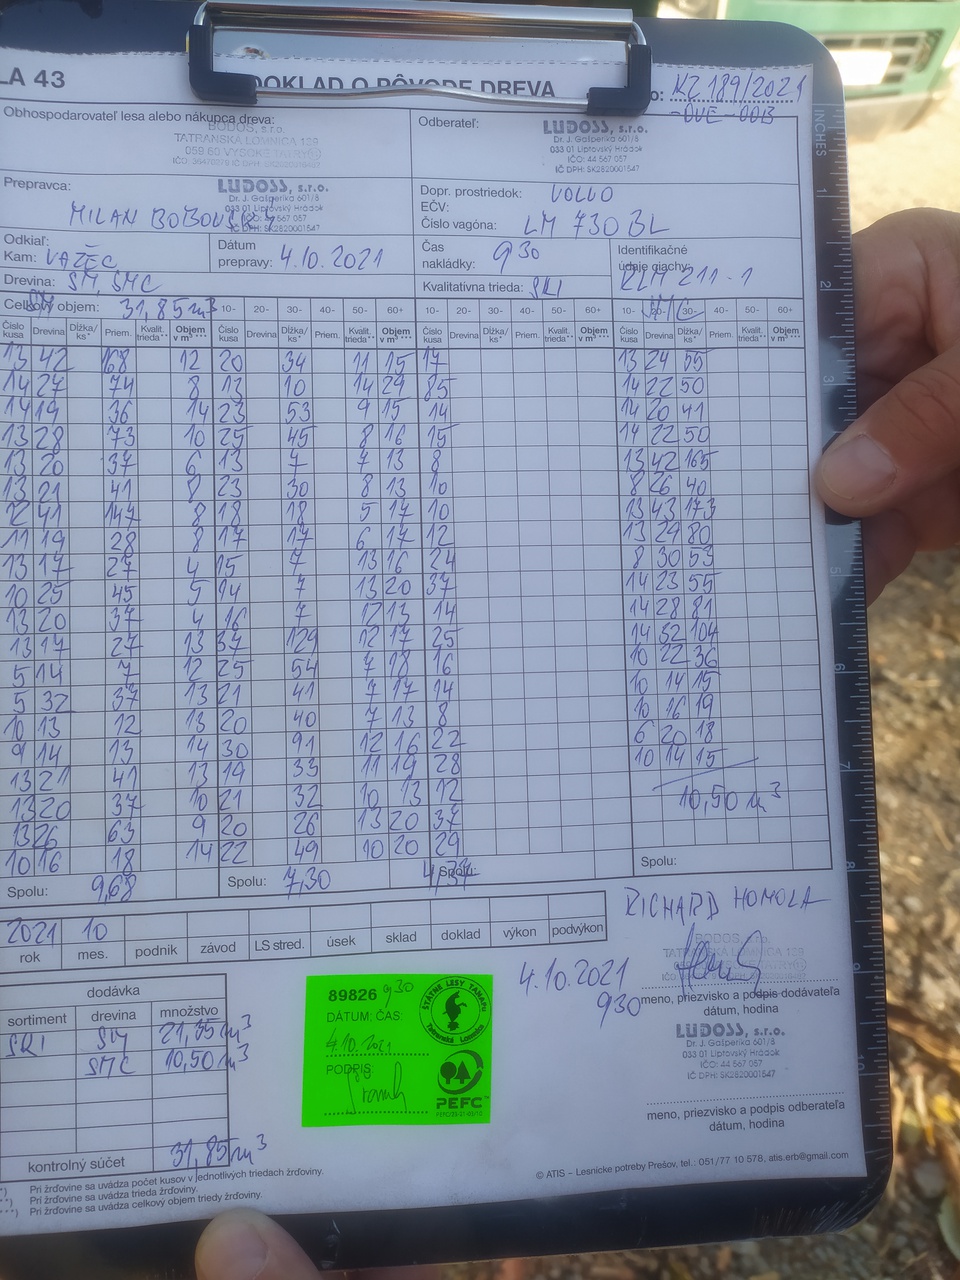 LA 43
DOKLAD O PÔVODE DREVA
KZ 189/2021
-OVE-OOB
Obhospodarovateľ lesa alebo nákupca dreva:
BODOS, s.r.o.
TATRANSKÁ LOMNICA
Odberateľ:
LUDOSS, s.r.o.
Dr. J. Gašperíka 601/8
033 01 Liptovský Hrádok
IČO: 44 567 057
IČ DPH: SK2820001547
Prepravca:
LUDOSS, s.r.o.
Dr. J. Gašperíka 601/8
033 01 Liptovský Hrádok
IČ DPH: SK2820001547
MILAN
Dopr. prostriedok: VOLVO
EČV:
Číslo vagóna: LM 730 BL
Odkiaľ:
Kam: VAŽEC
Dátum
prepravy: 4.10.2021
Čas
nakládky: 9 30
Identifikačné
údaje ciachy:
KLM 211-1
Drevina: SM, SMC
Kvalitatívna trieda:
Celkový objem: 31,85 m³
10- 20- 30- 40- 50- 60+
10- 20- 30- 40- 50- 60+
10- 30- 40- 50- 60+
Číslo kusa Drevina Dĺžka/ ks* Priem. Kvalit. trieda** Objem v m³ ***
Číslo kusa Drevina Dĺžka/ ks* Priem. Kvalit. trieda** Objem v m³ ***
Číslo kusa Drevina Dĺžka/ ks* Priem. Kvalit. trieda** Objem v m³ ***
Číslo kusa Drevina Dĺžka/ ks* Priem. Kvalit. trieda** Objem v m³ ***
13 42 168 12 20 34 11 15 17 13 24 55
14 27 74 8 13 10 14 29 85 14 22 50
14 19 36 14 23 53 9 15 14 14 20 41
13 28 73 10 25 45 8 16 15 14 22 50
13 20 37 6 13 7 7 13 8 13 42 165
13 21 41 8 23 30 8 13 10 8 26 40
12 41 147 8 18 18 5 17 10 13 43 173
11 19 28 8 17 17 6 17 12 13 29 80
13 17 27 4 15 7 13 16 24 8 30 53
10 25 45 5 14 7 13 20 37 14 23 55
13 20 37 4 16 7 12 13 14 14 28 81
13 17 27 13 37 129 12 17 25 14 32 104
5 14 7 12 25 54 7 18 16 10 22 36
5 32 37 13 21 41 7 17 14 10 14 15
10 13 12 13 20 40 7 13 8 10 16 19
9 14 13 14 30 91 12 16 22 6 20 18
13 21 41 13 19 33 11 19 28 10 14 15
13 20 37 10 21 32 10 13 12
10,50 m³
13 26 63 9 20 26 13 20 37
10 16 18 14 22 49 10 20 29
Spolu: 9,68
Spolu: 7,30
Spolu: 4,37
Spolu:
RICHARD HOMOLA
2021 10
rok mes. podnik závod LS stred. úsek sklad doklad výkon podvýkon
BODOS, s.r.o.
TATRANSKÁ LOMNICA
4.10.2021
9 30
meno, priezvisko a podpis dodávateľa
dátum, hodina
dodávka
sortiment drevina množstvo
SM 21,35 m³
SMC 10,50 m³
kontrolný súčet 31,85 m³
89826 9 30
DÁTUM, ČAS:
4.10.2021
PODPIS:
ŠTÁTNE LESY TANAPU
Tatranská Lomnica
PEFC
LUDOSS, s.r.o.
Dr. J. Gašperíka 601/8
033 01 Liptovský Hrádok
IČO: 44 567 057
IČ DPH: SK2820001547
meno, priezvisko a podpis odberateľa
dátum, hodina
*) Pri žrďovine sa uvádza počet kusov v jednotlivých triedach žrďoviny.
**) Pri žrďovine sa uvádza trieda žrďoviny.
***) Pri žrďovine sa uvádza celkový objem triedy žrďoviny.
© ATIS – Lesnícke potreby Prešov, tel.: 051/77 10 578, atis.erb@gmail.com
INCHES
1
2
3
5
6
7
8
9
10
11